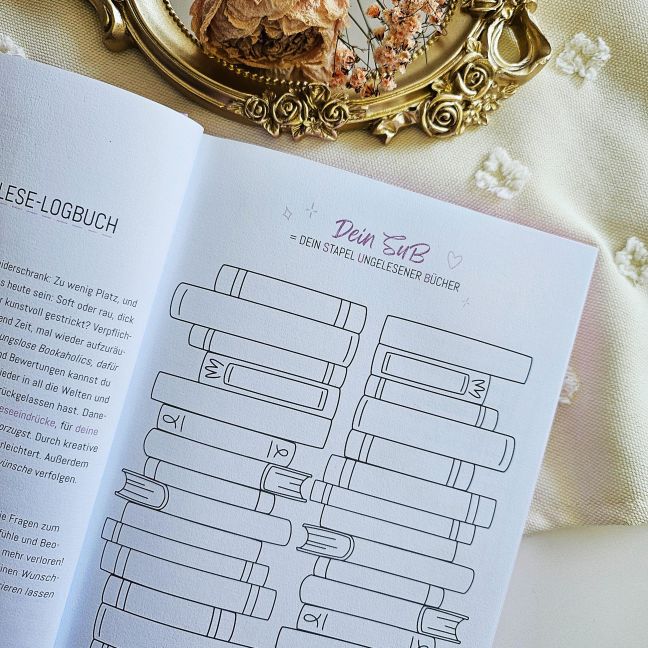 LESE-LOGBUCH
iderschrank: Zu wenig Platz, und
s heute sein: Soft oder rau, dick
r kunstvoll gestrickt? Verpflich-
end Zeit, mal wieder aufzuräu-
ungslose Bookaholics, dafür
nd Bewertungen kannst du
ieder in all die Welten und
rückgelassen hast. Dane-
eseeindrücke, für deine
orzugst. Durch kreative
erleichtert. Außerdem
ünsche verfolgen.
ie Fragen zum
fühle und Beo-
mehr verloren!
inen Wunsch-
rieren lassen
Dein SuB
= DEIN STAPEL UNGELESENER BÜCHER